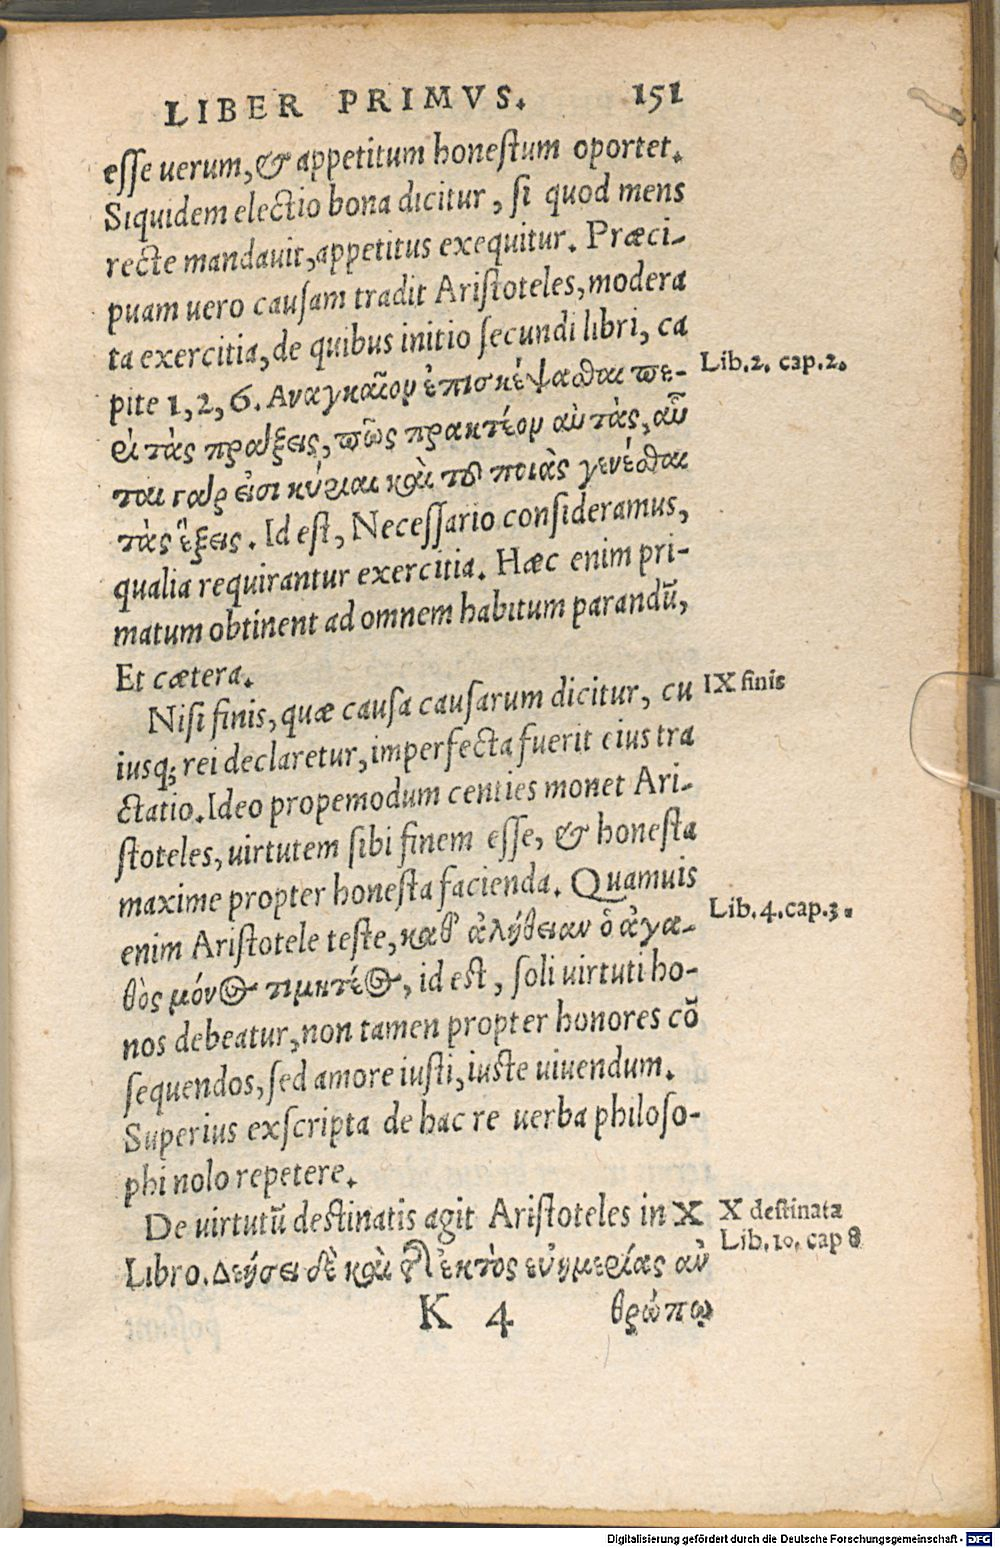 LIBER PRIMVS. 151
esse uerum, & appetitum honestum oportet.
Siquidem electio bona dicitur, si quod mens
recte mandauit, appetitus exequitur. Præci-
puam uero causam tradit Aristoteles, modera
ta exercitia, de quibus initio secundi libri, ca
pite 1, 2, 6. Αναγκαῖον ἐπισκέψασθαι πε-
Lib.2. cap.2.
ρὶ τὰς πράξεις, πῶς πρακτέον αὐτὰς, αὗ
ται γάρ εἰσι κύριαι καὶ τοῦ ποιὰς γενέσθαι
τὰς ἕξεις. Id est, Necessario consideramus,
qualia requirantur exercitia. Hæc enim pri-
matum obtinent ad omnem habitum parandū,
Et cætera.
Nisi finis, quæ causa causarum dicitur, cu
IX finis
iusq; rei declaretur, imperfecta fuerit eius tra
ctatio. Ideo propemodum centies monet Ari-
stoteles, uirtutem sibi finem esse, & honesta
maxime propter honesta facienda. Quamuis
enim Aristotele teste, καθ' ἀλήθειαν ὁ ἀγα-
Lib.4.cap.3.
θὸς μόνος τιμητέος, id est, soli uirtuti ho-
nos debeatur, non tamen propter honores cō
sequendos, sed amore iusti, iuste uiuendum.
Superius exscripta de hac re uerba philoso-
phi nolo repetere.
De uirtutū destinatis agit Aristoteles in X
X destinata
Libro. Δεήσει δὲ καὶ τῆς ἐκτὸς εὐημερίας ἀν
Lib.10. cap 8
K 4 θρώπῳ
Digitalisierung gefördert durch die Deutsche Forschungsgemeinschaft - DFG